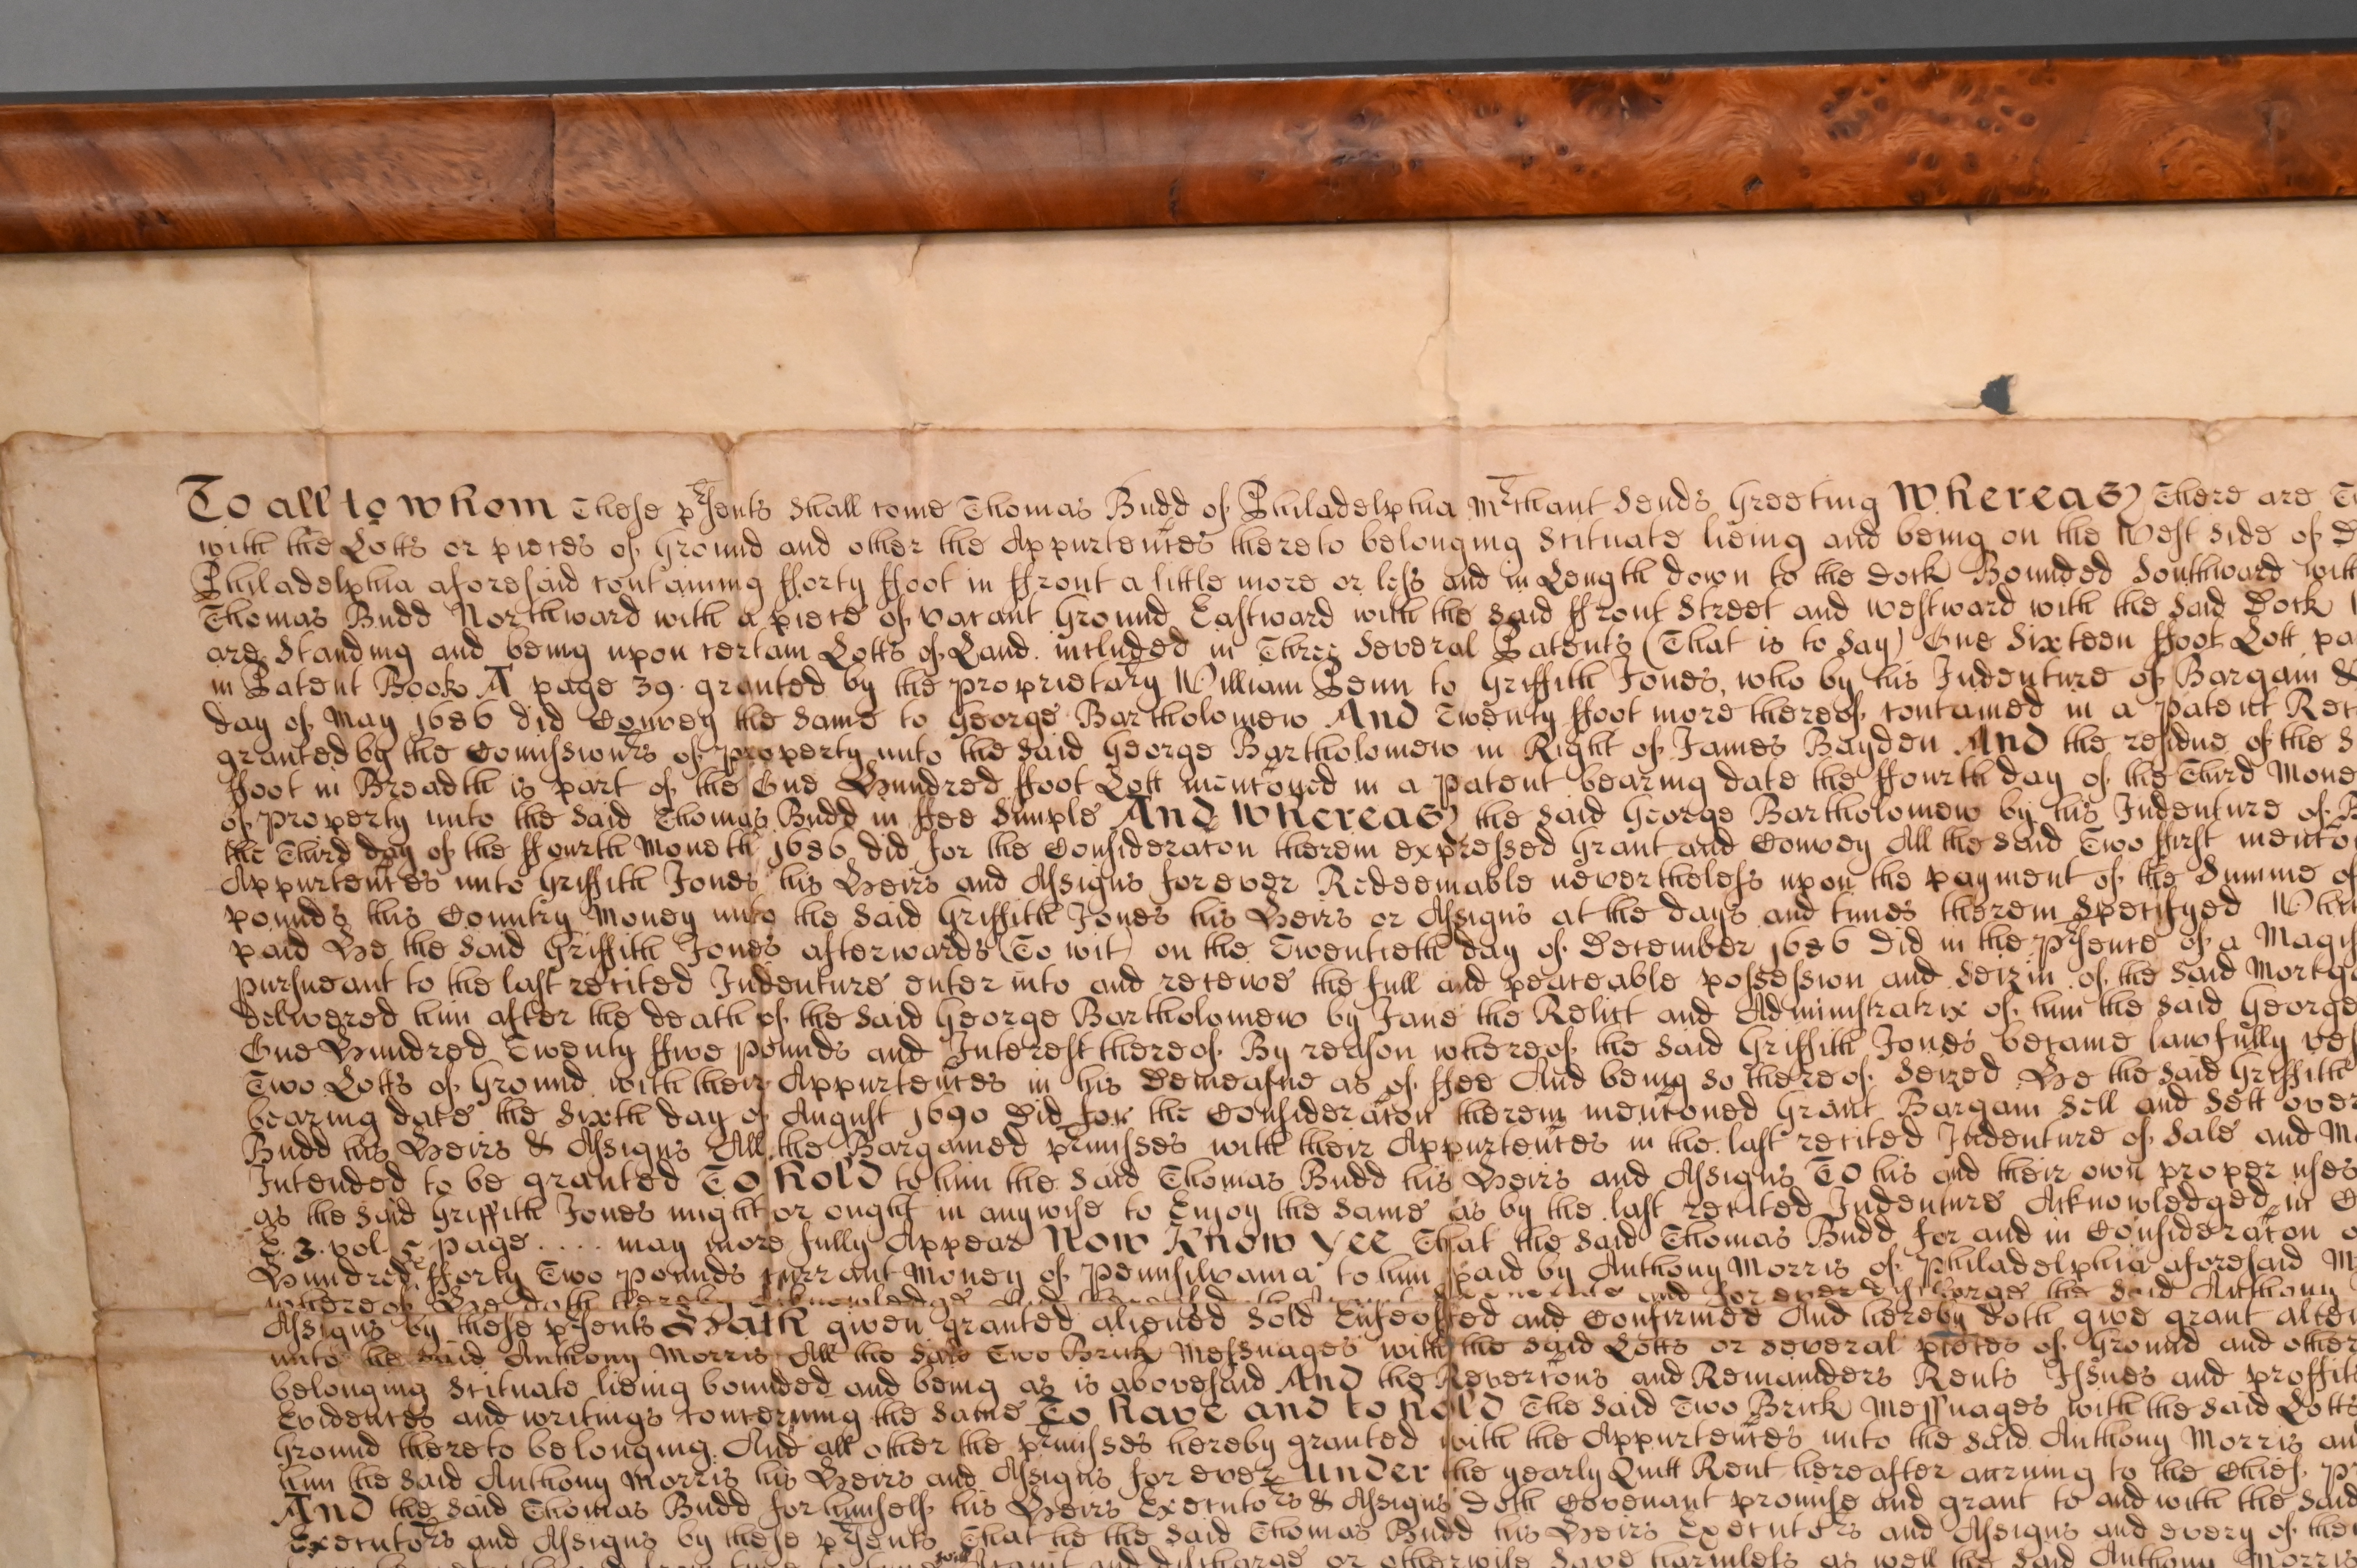 To all to whom These prsents Shall come Thomas Budd of Philadelphia Mrchant Sends Greeting Whereas There are
with the Lotts or pieces of Ground and other the Appurteñces thereto belonging Scituate lieing and being on the West Side of
Philadelphia aforesaid containing fforty ffoot in ffront a little more or less and in Length down to the Dock Bounded Southward with
Thomas Budd Northward with a piece of vacant Ground Eastward with the said ffront Street and westward with the said Dock
are Standing and being upon certain Lotts of Land included in Three Several Patents (That is to Say) One Sixteen ffoot Lott
in Patent Book A page 39 granted by the proprietary William Penn to Griffith Jones, who by his Indenture of Bargain &
day of May 1686 did Convey the Same to George Bartholomew And Twenty ffoot more thereof contained in a Patent
granted by the Comissionrs of property unto the said George Bartholomew in Right of James Bayden And the residue of the
ffoot in Breadth is part of the One Hundred ffoot Lott mentoned in a Patent bearing date the ffourth day of the Third
of property unto the Said Thomas Budd in ffee Simple And Whereas the said George Bartholomew by his Indenture of
the Third day of the ffourth Moneth 1686 did for the Consideracon therein expressed Grant and Convey All the said Two ffirst
Appurteñces unto Griffith Jones his Heirs and Assigns for ever Redeemable nevertheless upon the payment of the Summe of
pounds this Country Money unto the said Griffith Jones his Heirs or Assigns at the days and times therein Specifyed
paid He the said Griffith Jones afterwards (To wit) on the Twentieth day of December 1686 Did in the prsence of a
pursueant to the last recited Indenture enter into and receive the full and peaceable possession and Seizin of the said
delivered him after the death of the said George Bartholomew by Jane the Relict and Administratrix of him the said George
One Hundred Twenty ffive pounds and Interest thereof By reason whereof the said Griffith Jones became lawfully
Two Lotts of Ground with their Appurteñces in his Demeasne as of ffee And being so thereof Seized He the said Griffith
bearing date the Sixth day of August 1690 Did for the Consideraton therein mentoned Grant Bargain Sell and Sett over
Budd his Heirs & Assigns All the Bargained prmisses with their Appurteñces in the last recited Indenture of Sale and
Intended to be granted To Hold to him the said Thomas Budd his Heirs and Assigns To his and their own proper uses
as the said Griffith Jones might or ought in anywise to Enjoy the Same as by the last recited Indenture Acknowledged in
E. 3. vol. 5 page .... may more fully Appear Now Know Yee That the said Thomas Budd for and in Consideraton
Hundred fforty Two pounds currant Money of Pennsilvania to him paid by Anthony Morris of Philadelphia aforesaid
whereof He doth hereby acknowledge and for ever the said Anthony
Assigns by these prsents Hath given granted aliened Sold Enfeoffed and Confirmed And hereby doth give grant
unto the said Anthony Morris All the said Two Brick Messuages with the said Lotts or several pieces of Ground and other
belonging Scituate lieing bounded and being as is abovesaid And the Revertons and Remainders Rents Issues and
Evidences and writings concerning the Same To have and to hold The said Two Brick Messuages with the said Lotts
Ground thereto belonging And all other the prmisses hereby granted with the Appurteñces unto the said Anthony Morris
him the said Anthony Morris his Heirs and Assigns for ever Under the yearly Quitt Rent hereafter accruing to the Chief
And the said Thomas Budd for himself his Heirs Executors & Assigns Doth Covenant promise and grant to and with the said
Executors and Assigns by these prsents That he the said Thomas Budd his Heirs Executors and Assigns and every of
will Acquit and discharge or otherwise Save harmless as well the said Anthony Morris